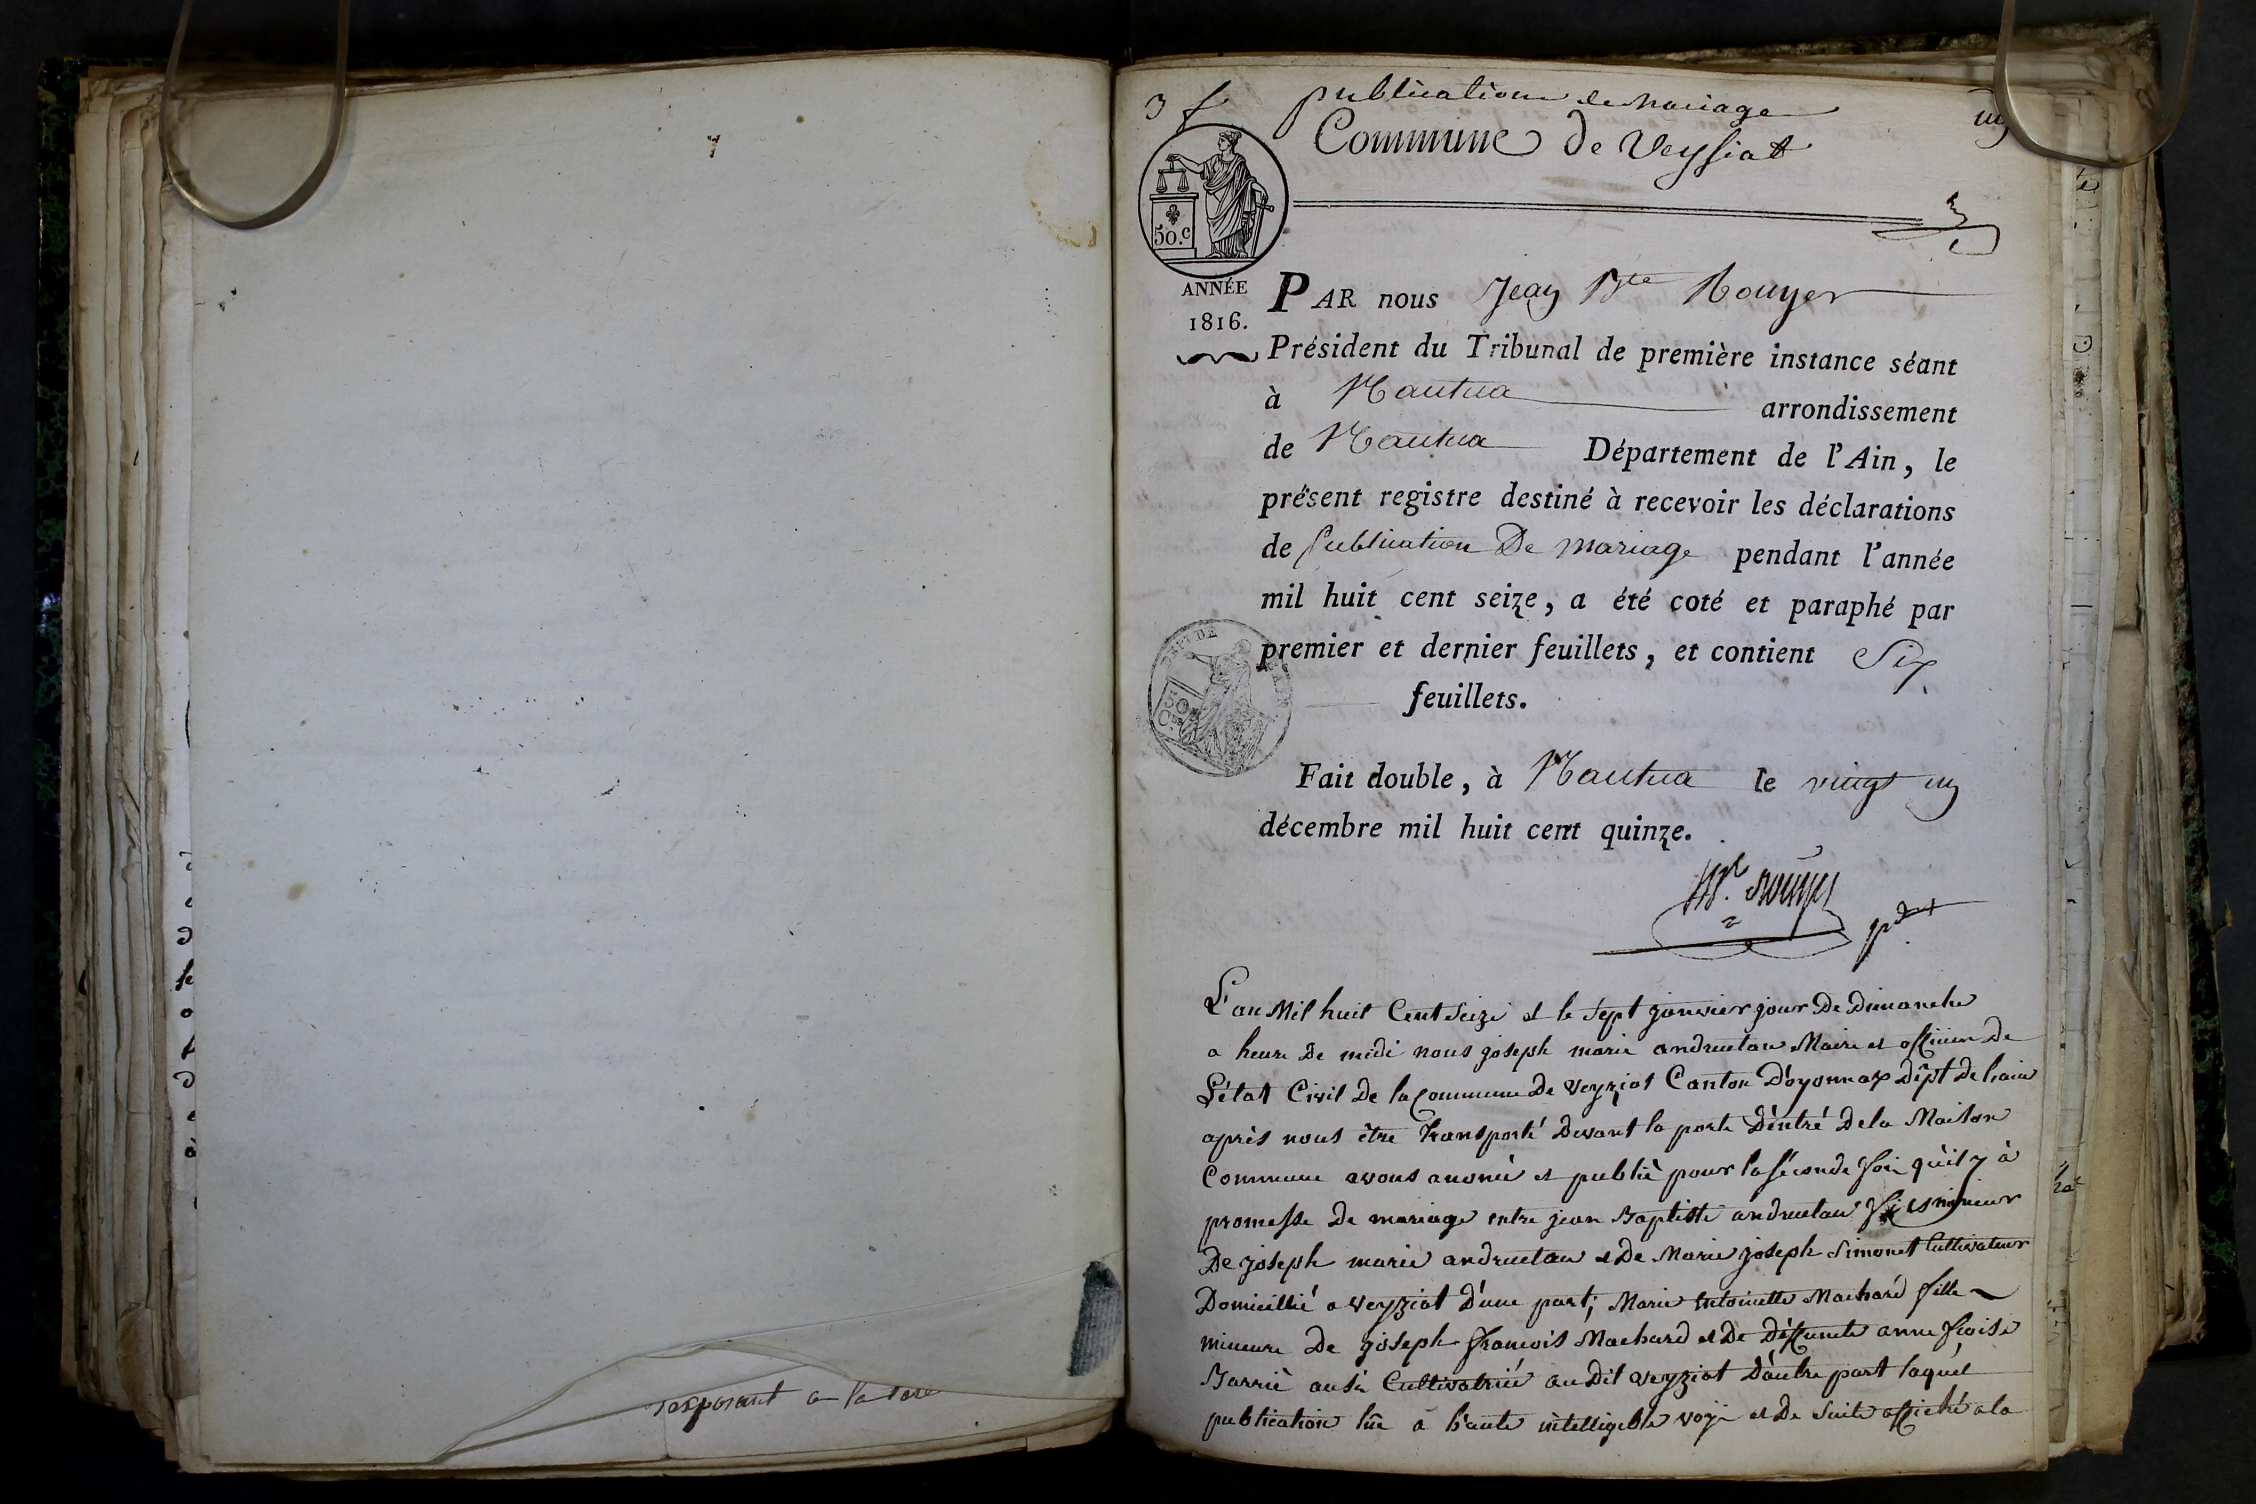 3 f
publication de mariage
un
Commune de Veyssiat
50.c
ANNÉE
1816.
PAR nous Jean Bte Rouyer
Président du Tribunal de première instance séant
à Nantua arrondissement
de Nantua Département de l'Ain, le
présent registre destiné à recevoir les déclarations
de publication De mariage pendant l'année
mil huit cent seize, a été coté et paraphé par
premier et dernier feuillets, et contient Six
feuillets.
50
Fait double, à Nantua le vingt un
décembre mil huit cent quinze.
Rouyer pdent
L'an Mil huit Cent Seize et le sept janvier jour De Dimanche
a heure De midi nous joseph marie andruetan Maire et officier De
L'état Civil De la Commune De veyziat Canton D'oyonnax Dépt De lain
après nous être transporté Devant la porte D'entré De la Maison
Commune avons anoncé et publié pour la séconde fois qu'il y à
promesse De mariage entre jean Baptiste andruetan fils mineur
De joseph marie andruetan et De Marie joseph Simonet Cultivateur
Domicillié a veyziat D'une part; Marie antoinette Machard fille
mineure De joseph francois Machard et De Défunte anne froise
Barrié ausi Cultivatrice au Dit veyziat D'autre part laquel
publication lüe a haute intelligible voix et De suite affiché a la
a la